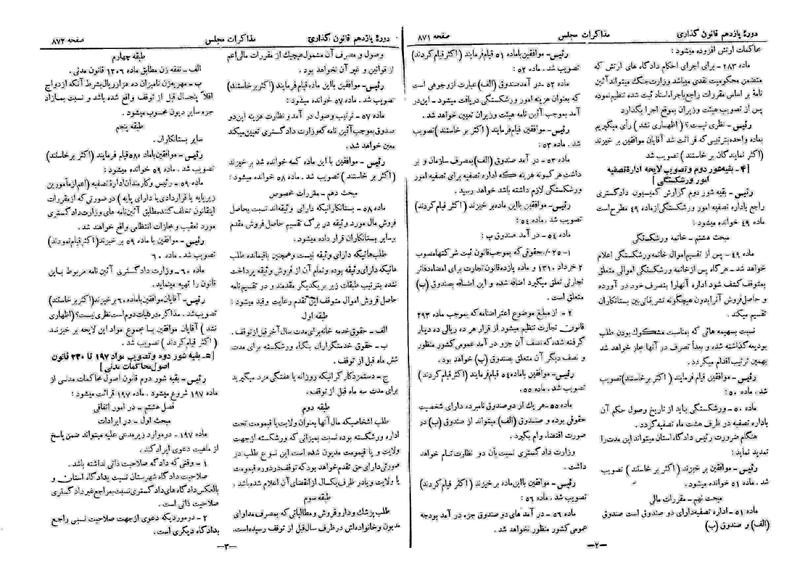 دورهٔ یازدهم قانون گذاری
مذاکرات مجلس
صفحه ۸۷۱
محاکمات ارتش افزوده میشود :
ماده ۲۸۳ - برای اجرای احکام دادگاه های ارتش که
متضمن محکومیت نقدی میباشد وزارت جنگ میتواند آئین
نامه بر اساس مقررات راجع باجراء اسناد ثبت شده تنظیم نموده
پس از تصویب هیئت وزیران بموقع اجرا بگذارد
رئیس - نظری نیست؟ (اظهاری نشد) رأی میگیریم
بماده واحده بترتیبی که قرائت شد آقایان موافقین بر خیزند
(اکثر نمایندگان بر خاستند) تصویب شد
[۴ - بقیه شور دوم و تصویب لایحه ادارهٔ تصفیه
امور ورشکستگی]
رئیس - بقیه شور دوم گزارش کمیسیون دادگستری
راجع باداره تصفیه امور ورشکستگی از ماده ۴۹ مطرح است
ماده ۴۹ خوانده میشود :
مبحث هشتم - خاتمه ورشکستگی
ماده ۴۹ - پس از تقسیم اموال خاتمه ورشکستگی اعلام
خواهد شد - هر گاه پس از خاتمه ورشکستگی اموالی متعلق
بمتوقف کشف شود اداره آنهارا بتصرف خود در آورده
و حاصل فروش آنرا بدون هیچگونه تشریفاتی بین بستانکاران
تقسیم میکند .
نسبت بسهمیه هائی که بمناسبت مشکوک بودن طلب
بودیعه گذاشته شده و بعداً تصرف در آنها مجاز خواهد شد
بهمین ترتیب اقدام میگردد .
رئیس - موافقین قیام فرمایند (اکثر برخاستند) تصویب
شد . ماده ۵۰ :
ماده ۵۰ - ورشکستگی باید از تاریخ وصول حکم آن
باداره تصفیه در ظرف هشت ماه تصفیه گردد .
هنگام ضرورت رئیس دادگاه استان میتواند این مدت را
تمدید نماید :
رئیس - موافقین برخیزند (اکثر بر خاستند) تصویب
شد . ماده ۵۱ خوانده میشود .
مبحث نهم - مقررات مالی
ماده ۵۱ - اداره تصفیه دارای دو صندوق است صندوق
(الف) و صندوق (ب)
رئیس - موافقین باماده ۵۱ قیام فرمایند (اکثر قیام کردند)
تصویب شد . ماده ۵۲ :
ماده ۵۲ - در آمد صندوق (الف) عبارت از وجوهی است
که بعنوان هزینه امور ورشکستگی دریافت میشود . این در
آمد بموجب آئین نامه هیئت وزیران تعیین خواهد شد .
رئیس - موافقین قیام فرمایند (اکثر بر خاستند) تصویب
شد . ماده ۵۳ :
ماده ۵۳ - در آمد صندوق (الف) بمصرف سازمان و بر
داشت هر گونه هزینه که اداره تصفیه برای تصفیه امور
ورشکستگی لازم داشته باشد خواهد رسید .
رئیس - موافقین بااین ماده بر خیزند (اکثر قیام کردند)
تصویب شد . ماده ۵۴ :
ماده ۵۴ - در آمد صندوق ب :
۱ - حقوقی که بموجب قانون ثبت شرکتها مصوب
۲ خرداد ۱۳۱۰ و ماده قانون تجارت برای امضاء دفاتر
تجارتی تعلق میگیرد اضافه شده و این اضافه بصندوق (ب)
متعلق است .
۲ - از مبلغ موضوع اعتراضنامه که بموجب ماده ۲۹۳
قانون تجارت تنظیم میشود از قرار هر ده ریالی ده دینار
گرفته شده که نصف آن جزو در آمد عمومی کشور منظور
و نصف دیگر آن متعلق بصندوق (ب) خواهد بود .
رئیس - موافقین با ماده ۵۴ قیام فرمایند (اکثر قیام کردند)
تصویب شد . ماده ۵۵ :
ماده ۵۵ - هر یک از دو صندوق نامبرده دارای شخصیت
حقوقی بوده و صندوق (الف) میتواند از صندوق (ب) در
صورت اقتضاء وام بگیرد .
وزارت دادگستری نسبت بآن دو نظارت تمام خواهد
داشت .
رئیس - موافقین بااین ماده بر خیزند (اکثر قیام کردند)
تصویب شد . ماده ۵۶ :
ماده ۵۶ - در آمد های دو صندوق جزء در آمد بودجه
عمومی کشور منظور نخواهد شد .
—۲—
دورهٔ یازدهم قانون گذاری
مذاکرات مجلس
صفحه ۸۷۲
وصول و مصرف آن مشمول هیچیک از مقررات مالی اعم
از قوانین و غیر آن نخواهد بود .
رئیس - موافقین بااین ماده قیام فرمایند (اکثر برخاستند)
تصویب شد . ماده ۵۷ خوانده میشود :
ماده ۵۷ - ترتیب وصول در آمد و نظارت هزینه این دو
صندوق بموجب آئین نامه که وزارت دادگستری تعیین میکند
معین خواهد شد .
رئیس - موافقین با این ماده که خوانده شد بر خیزند
(اکثر بر خاستند) تصویب شد . ماده ۵۸ خوانده میشود :
مبحث دهم - مقررات مخصوص
ماده ۵۸ - بستانکارانیکه دارای وثیقه‌اند نسبت بحاصل
فروش مال مورد وثیقه در برگ تقسیم حاصل فروش مقدم
بر سایر بستانکاران قرار داده میشود .
طلب هائیکه دارای وثیقه نیست و همچنین باقیمانده طلب
هائیکه دارای وثیقه بوده و تمام آن از فروش وثیقه پرداخت
نشده بترتیب طبقات زیر بر یکدیگر مقدمند و در تقسیم نامه
حاصل فروش اموال متوقف این تقدم رعایت و قید میشود :
طبقه اول
الف - حقوق خدمه خانه برای مدت سال آخر قبل از توقف .
ب - حقوق خدمتگذاران بنگاه ورشکسته برای مدت
شش ماه قبل از توقف .
ج - دستمزد کارگرانیکه روزانه یا هفتگی مزد میگیرند
برای مدت سه ماه قبل از توقف .
طبقه دوم
طلب اشخاصیکه مال آنها بعنوان ولایت یا قیمومت تحت
اداره ورشکسته بوده نسبت بمیزانی که ورشکسته از جهت
ولایت و یا قیمومت مدیون شده است این نوع طلب در
صورتی دارای حق تقدم خواهد بود که توقف در دوره قیمومت
یا ولایت و یا در ظرف یکسال از انقضای آن اعلام شده باشد .
طبقه سوم
طلب پزشک و دارو فروش و مطالباتی که بمصرف مداوای
مدیون و خانواده‌اش در ظرف سال قبل از توقف رسیده است .
طبقه چهارم
الف - نفقه زن مطابق ماده ۱۲۰۶ قانون مدنی .
ب - مهریه زن تا میزان ده هزار ریال بشرط آنکه ازدواج
اقلاً پنجسال قبل از توقف واقع شده باشد و نسبت بمازاد
جزء سایر دیون محسوب میشود .
طبقه پنجم
سایر بستانکاران .
رئیس - موافقین باماده ۵۸ قیام فرمایند (اکثر بر خاستند)
تصویب شد . ماده ۵۹ خوانده میشود :
ماده ۵۹ - رئیس و کارمندان اداره تصفیه (اعم از مأمورین
زیر پایه یا قراردادی یا دارای پایه) در صورتی که از مقررات
این قانون تخلف کنند مطابق آئین نامه های وزارت دادگستری
مورد تعقیب و مجازات انتظامی واقع خواهند شد .
رئیس - موافقین با ماده ۵۹ بر خیزند (اکثر قیام نمودند)
تصویب شد . ماده ۶۰ :
ماده ۶۰ - وزارت دادگستری آئین نامه مربوط باین
قانون را تهیه مینماید .
رئیس - آقایان موافقین باماده ۶۰ بر خیزند (اکثر برخاستند)
تصویب شد . مذاکره در کلیات دوم است نظری نیست؟ (اظهاری
نشد) آقایان موافقین با مجموع مواد این لایحه بر خیزند
(اکثر بر خاستند) تصویب شد .
[۵ - بقیه شور دوم و تصویب مواد ۱۹۷ تا ۲۳۰ قانون
اصول محاکمات مدنی]
رئیس - بقیه شور دوم قانون اصول محاکمات مدنی از
ماده ۱۹۷ شروع میشود . ماده ۱۹۷ قرائت میشود :
فصل هشتم - در امور اتفاقی
مبحث اول - در ایرادات
ماده ۱۹۷ - در موارد زیر مدعی علیه میتواند ضمن پاسخ
از ماهیت دعوی ایراد کند .
۱ - وقتی که دادگاه صلاحیت ذاتی نداشته باشد .
صلاحیت دادگاه شهرستان نسبت بدادگاه استان و
بالعکس دادگاه های دادگستری نسبت بمراجع غیر دادگستری
صلاحیت ذاتی است .
۲ - در موردیکه دعوی از جهت صلاحیت نسبی راجع
بدادگاه دیگری است .
—۳—